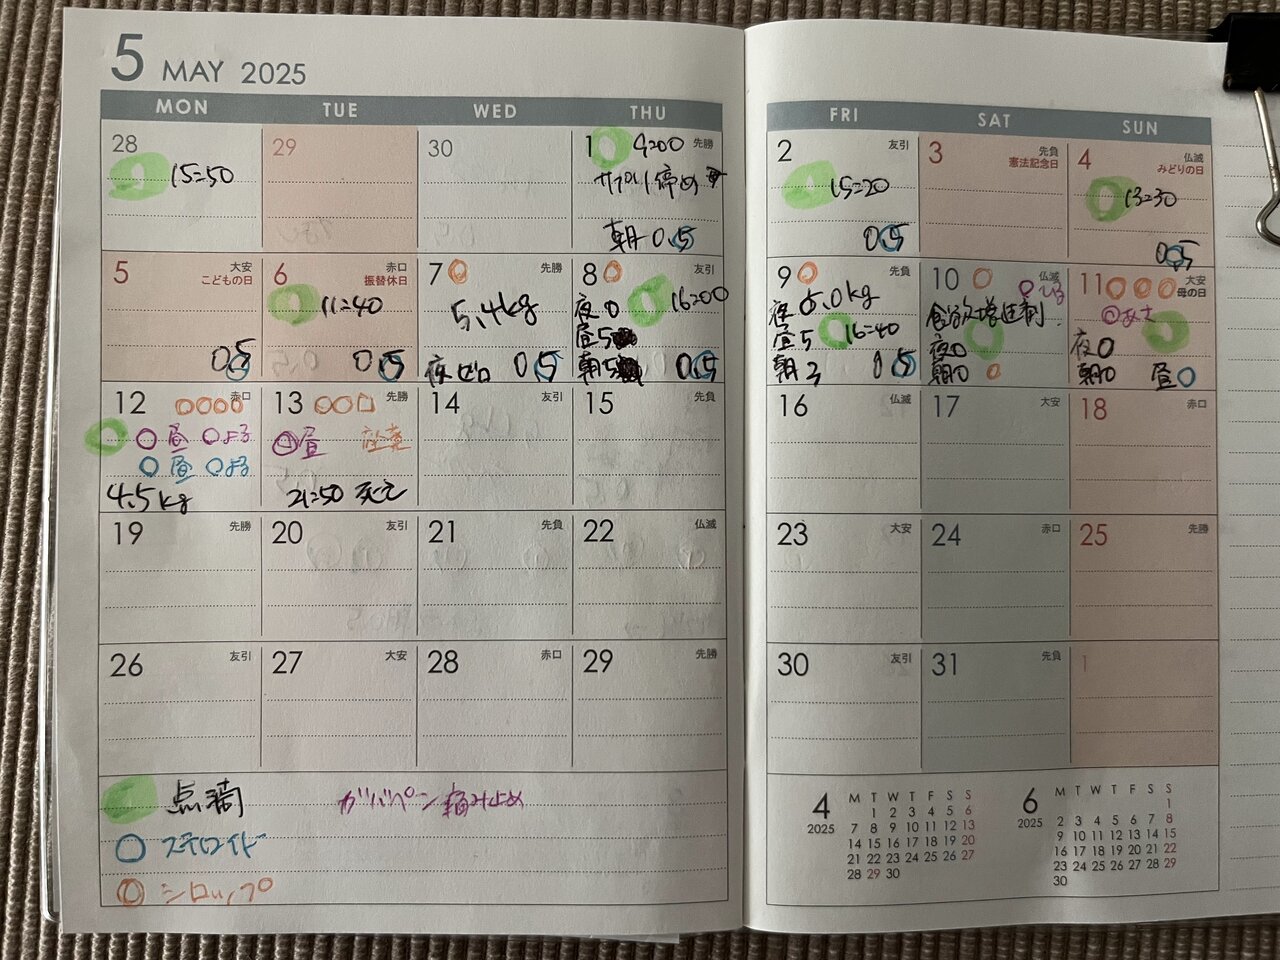 5 MAY 2025
MON TUE WED THU
FRI SAT SUN
28
15=50
29
30
1 先勝
9=00
サプリ停め
朝 0.5
2 友引
15=20
0.5
3 先負
憲法記念日
4 仏滅
みどりの日
13=30
0.5
5 大安
こどもの日
0.5
6 赤口
振替休日
11=40
0.5
7 先勝
5.4kg
夜ゼロ 0.5
8 友引
16=00
夜0
昼5
朝5
0.5
9 先負
夜0
5.0kg
昼5 16=40
朝3 0.5
10 仏滅
よる
食欲増進剤
夜0
朝0
11 大安
母の日
あさ
夜0
朝0 昼
12 赤口
昼 よる
昼 よる
4.5kg
13 先勝
昼
21=50 死亡
14 友引
15 先負
16 仏滅
17 大安
18 赤口
19 先勝
20 友引
21 先負
22 仏滅
23 大安
24 赤口
25 先勝
26 友引
27 大安
28 赤口
29 先勝
30 友引
31 先負
1
点滴
ガバペン 痛み止め
ステロイド
シロップ
4
2025
M T W T F S S
1 2 3 4 5 6
7 8 9 10 11 12 13
14 15 16 17 18 19 20
21 22 23 24 25 26 27
28 29 30
6
2025
M T W T F S S
1
2 3 4 5 6 7 8
9 10 11 12 13 14 15
16 17 18 19 20 21 22
23 24 25 26 27 28 29
30